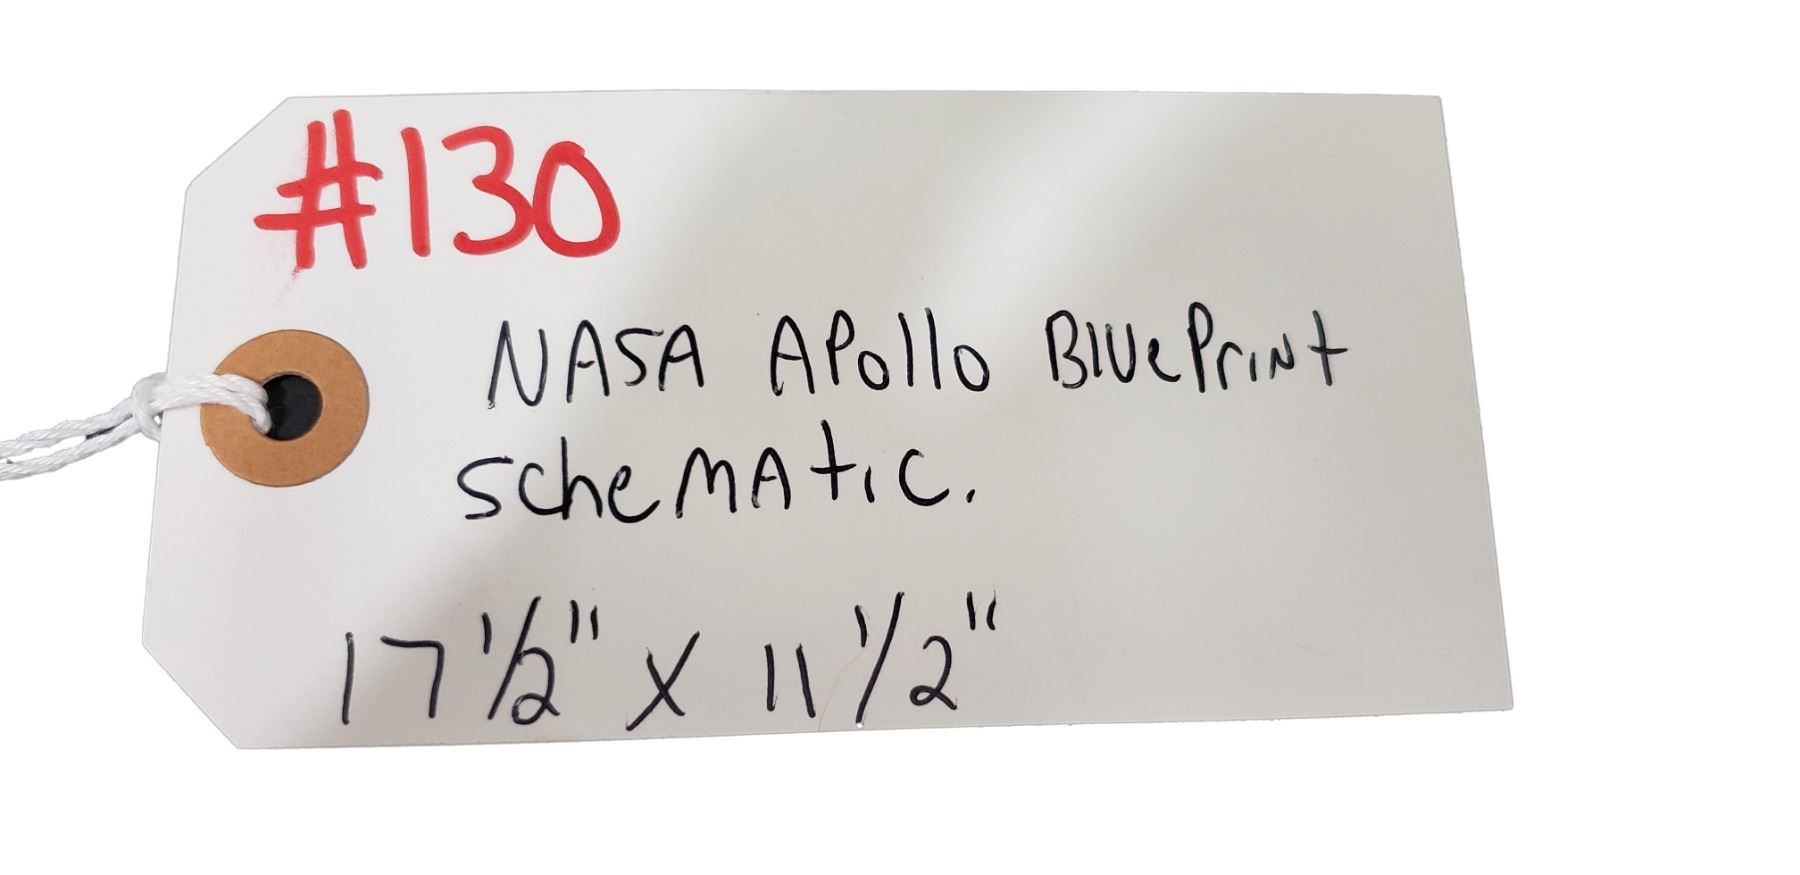 #130
NASA APollo BluePrint
scheMAtic.
17 1/2" x 11 1/2"